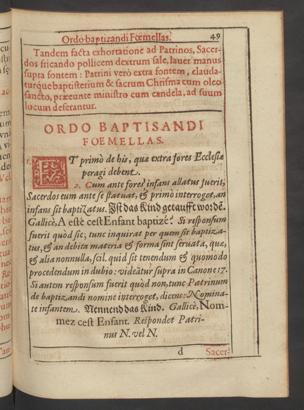 Ordo baptizandi Fœmellas. 49
Tandem facta exhortatione ad Patrinos, Sacer-
dos fricando pollicem dextrum sale, lauet manus
supra fontem: Patrini verò extra fontem, clauda-
turque baptisterium & sacrum Chrisma cum oleo
sancto, præeunte ministro cum candela, ad suum
locum deferantur.
ORDO BAPTISANDI
FOEMELLAS.
ET primò de his, quæ extra fores Ecclesiæ
peragi debent.
2. Cum ante fores infans allatus fuerit,
Sacerdos eum ante se statuat, & primò interroget, an
infans sit baptizatus. Ist das Kind getaufft wordē.
Gallicè, A esté cest Enfant baptizé? Si responsum
fuerit quòd sic; tunc inquirat per quem sit baptiza-
tus, & an debita materia & forma sint seruata, quæ,
& alia nonnulla, scil. quid sit tenendum & quomodo
procedendum in dubio: videatur supra in Canone 17.
Si autem responsum fuerit quòd non, tunc Patrinum
de baptizandi nomine interroget, dicens: Nomina-
te infantem. Nennend das Kind. Gallicè, Nom-
mez cest Enfant. Respondet Patri-
nus N. vel N.
d Sacer-